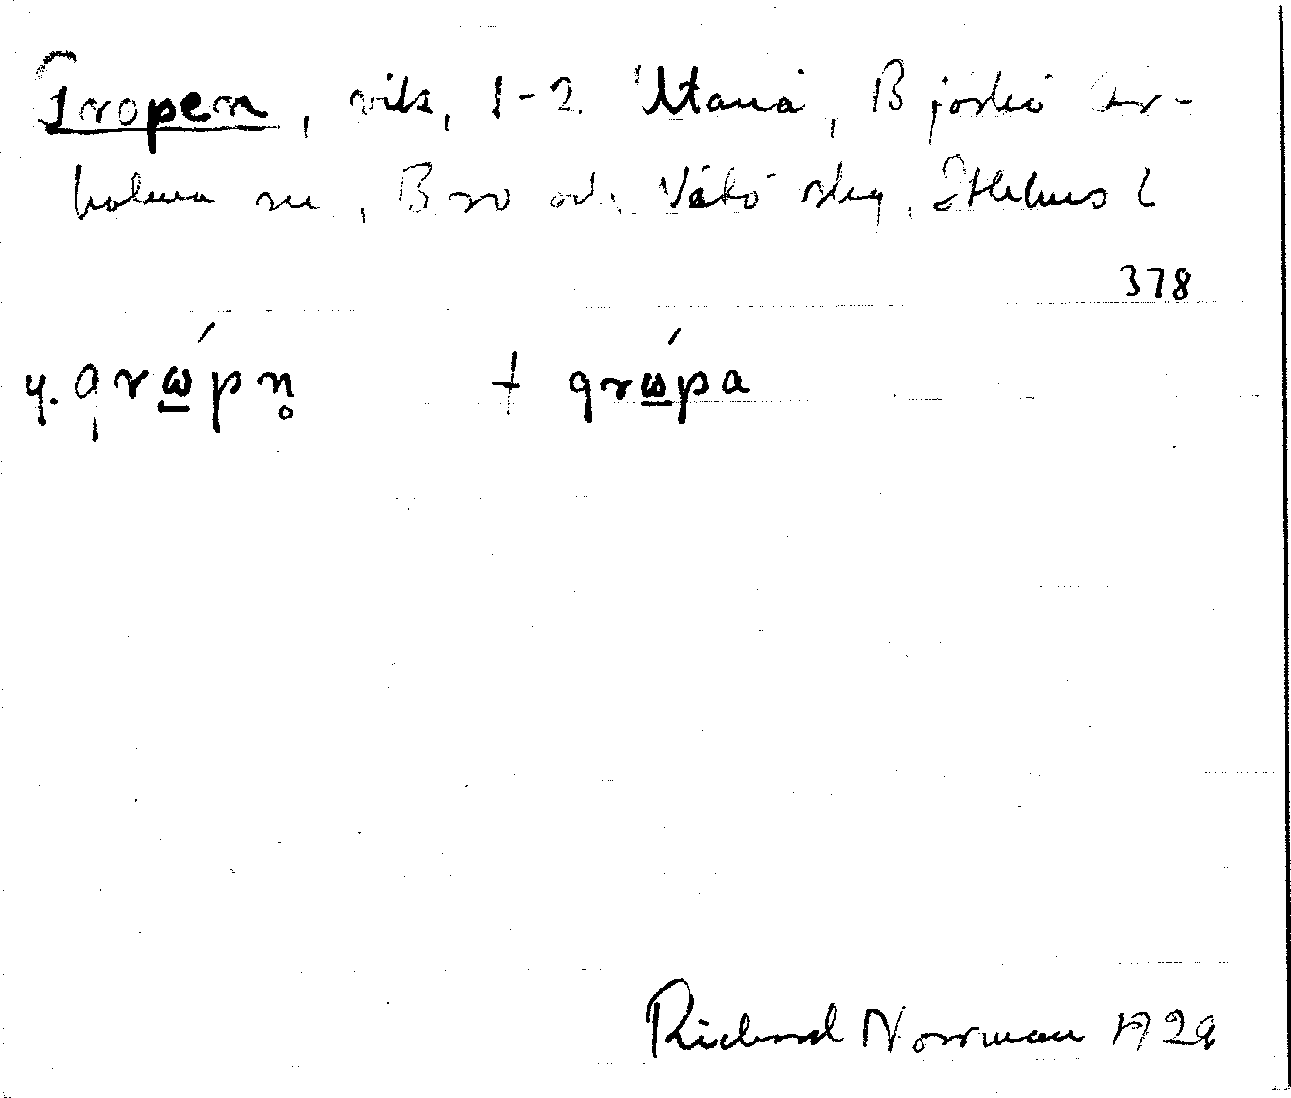 Gropen, vik, 1-2. Utanå, Björkö Ar-
holma sn, Bro och Vätö skg, Sthlms l
378
y. grώpn̥ + grώpa
Richard Norrman 1929